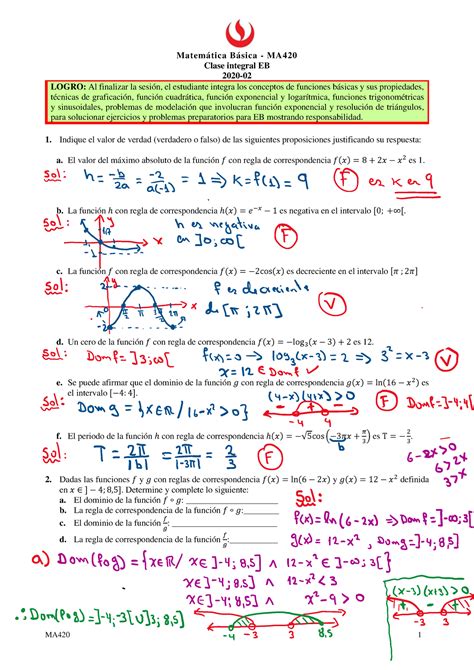 Matemática Básica - MA420
Clase integral EB
2020-02
LOGRO: Al finalizar la sesión, el estudiante integra los conceptos de funciones básicas y sus propiedades,
técnicas de graficación, función cuadrática, función exponencial y logarítmica, funciones trigonométricas
y sinusoidales, problemas de modelación que involucran función exponencial y resolución de triángulos,
para solucionar ejercicios y problemas preparatorios para EB mostrando responsabilidad.
1. Indique el valor de verdad (verdadero o falso) de las siguientes proposiciones justificando su respuesta:
a. El valor del máximo absoluto de la función f con regla de correspondencia f(x) = 8 + 2x − x² es 1.
Sol: h = -b/2a = -2/2(-1) = 1 ⇒ k = f(1) = 9 (F) es k en 9
b. La función h con regla de correspondencia h(x) = e^−x − 1 es negativa en el intervalo [0; +∞[.
Sol: h es negativa
en ]0; ∞[ (F)
c. La función f con regla de correspondencia f(x) = −2cos(x) es decreciente en el intervalo [π ; 2π]
Sol: f es decreciente
de [π ; 2π] (V)
d. Un cero de la función f con regla de correspondencia f(x) = −log₃(x − 3) + 2 es 12.
Sol: Dom f = ]3; ∞[ f(x) = 0 → log₃(x-3) = 2 ⇒ 3² = x-3
x = 12 ∈ Dom f (V)
e. Se puede afirmar que el dominio de la función g con regla de correspondencia g(x) = ln(16 − x²) es
el intervalo [−4; 4].
Sol: Dom g = {x∈R / 16-x² > 0} (4-x)(4+x) > 0 (F) Dom f = ]-4; 4[
-4 4
f. El periodo de la función h con regla de correspondencia h(x) = −√5 cos(−3πx + π/3) es T = −2/3.
Sol: T = 2π/|b| = 2π/|-3π| = 2/3 (F)
6-2x > 0
6 > 2x
3 > x
2. Dadas las funciones f y g con reglas de correspondencia f(x) = ln(6 − 2x) y g(x) = 12 − x² definida
en x ∈ ] − 4; 8,5]. Determine y complete lo siguiente:
a. El dominio de la función f ∘ g:
b. La regla de correspondencia de la función f ∘ g:
c. El dominio de la función f/g:
d. La regla de correspondencia de la función f/g:
Sol:
f(x) = ln(6-2x) ⇒ Dom f = ]-∞; 3[
g(x) = 12-x², Dom g = ]-4; 8,5]
a) Dom(f∘g) = {x∈R / x∈]-4; 8,5] ∧ 12-x² ∈ ]-∞; 3[}
x∈]-4; 8,5] ∧ 12-x² < 3
x∈]-4; 8,5] ∧ x²-9 > 0
(x-3)(x+3) > 0
+ - +
-3 3
∴ Dom(f∘g) = ]-4; -3[ ∪ ]3; 8,5]
-4 -3 3 8,5
MA420 1